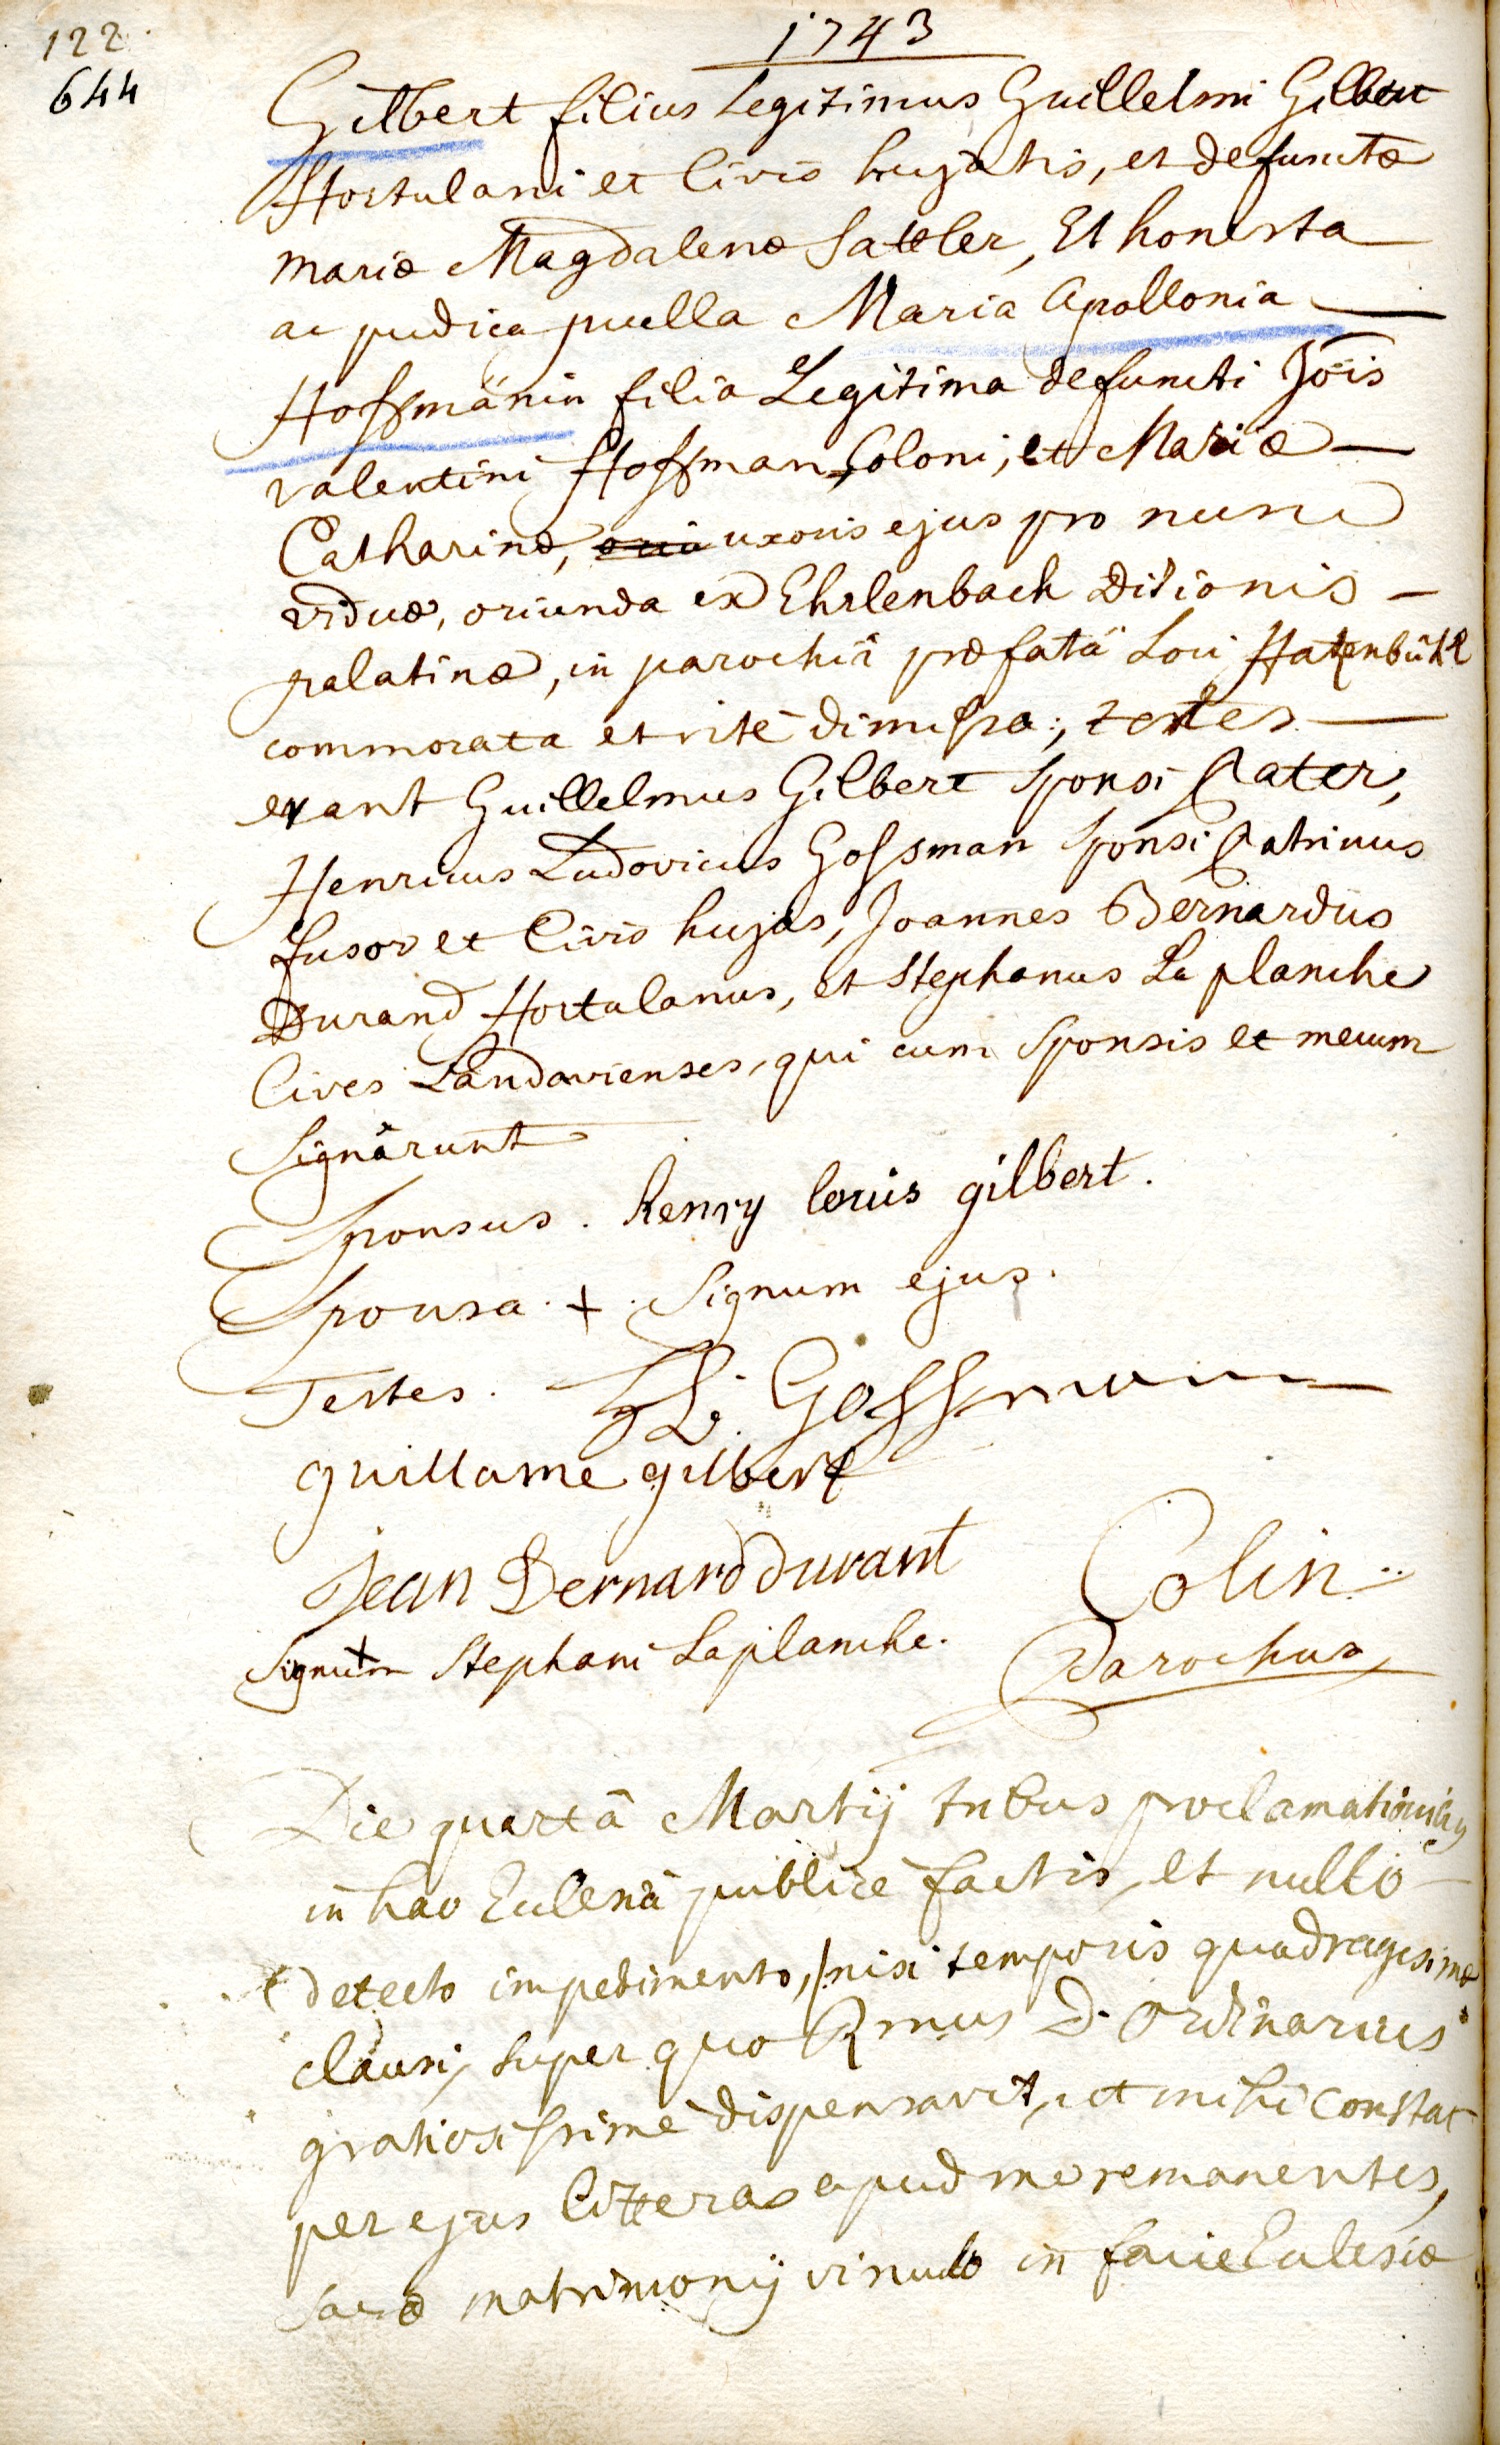 122.
644
1743
Gilbert filius Legitimus Guillelmi Gilbert
Hortulani et Civis hujatis, et defunctæ
mariæ Magdalenæ Sattler, Et honesta
ac pudica puella Maria Apollonia
Hoffmänin filia Legitima defuncti Jois
valentini Hoffman Coloni, et Mariæ
Catharinæ, uxoris ejus pro nunc
viduæ, oriunda ex Ehrlenbach Ditionis
palatinæ, in parochiâ præfatâ Loci Hatzenbühl
commorata et ritè dimissa; testes
erant Guillelmus Gilbert Sponsi Pater,
Henricus Ludovicus Gossman Sponsi Patrinus
fusor et Civis hujas, Joannes Bernardus
Durand Hortulanus, et Stephanus La planche
Cives Landavienses, qui cum Sponsis et mecum
Signârunt
Sponsus. henry louis gilbert.
Sponsa. + Signum ejus.
Testes. H L. Gossmann
guillame gilbert
Jean Bernard Durant
Colin
Signum + Stephani Laplanche.
Parochus
Die quartâ Martij tribus proclamationibus
in hac Ecclesiâ publicè factis, et nullo
detecto impedimento, nisi temporis quadragesimæ
clausi, super quo Rmus D. Ordinarius
gratiosissimè dispensavit, ut mihi constat
per ejus litteras apud me remanentes,
sacro matrimonij vinculo in facie Ecclesiæ